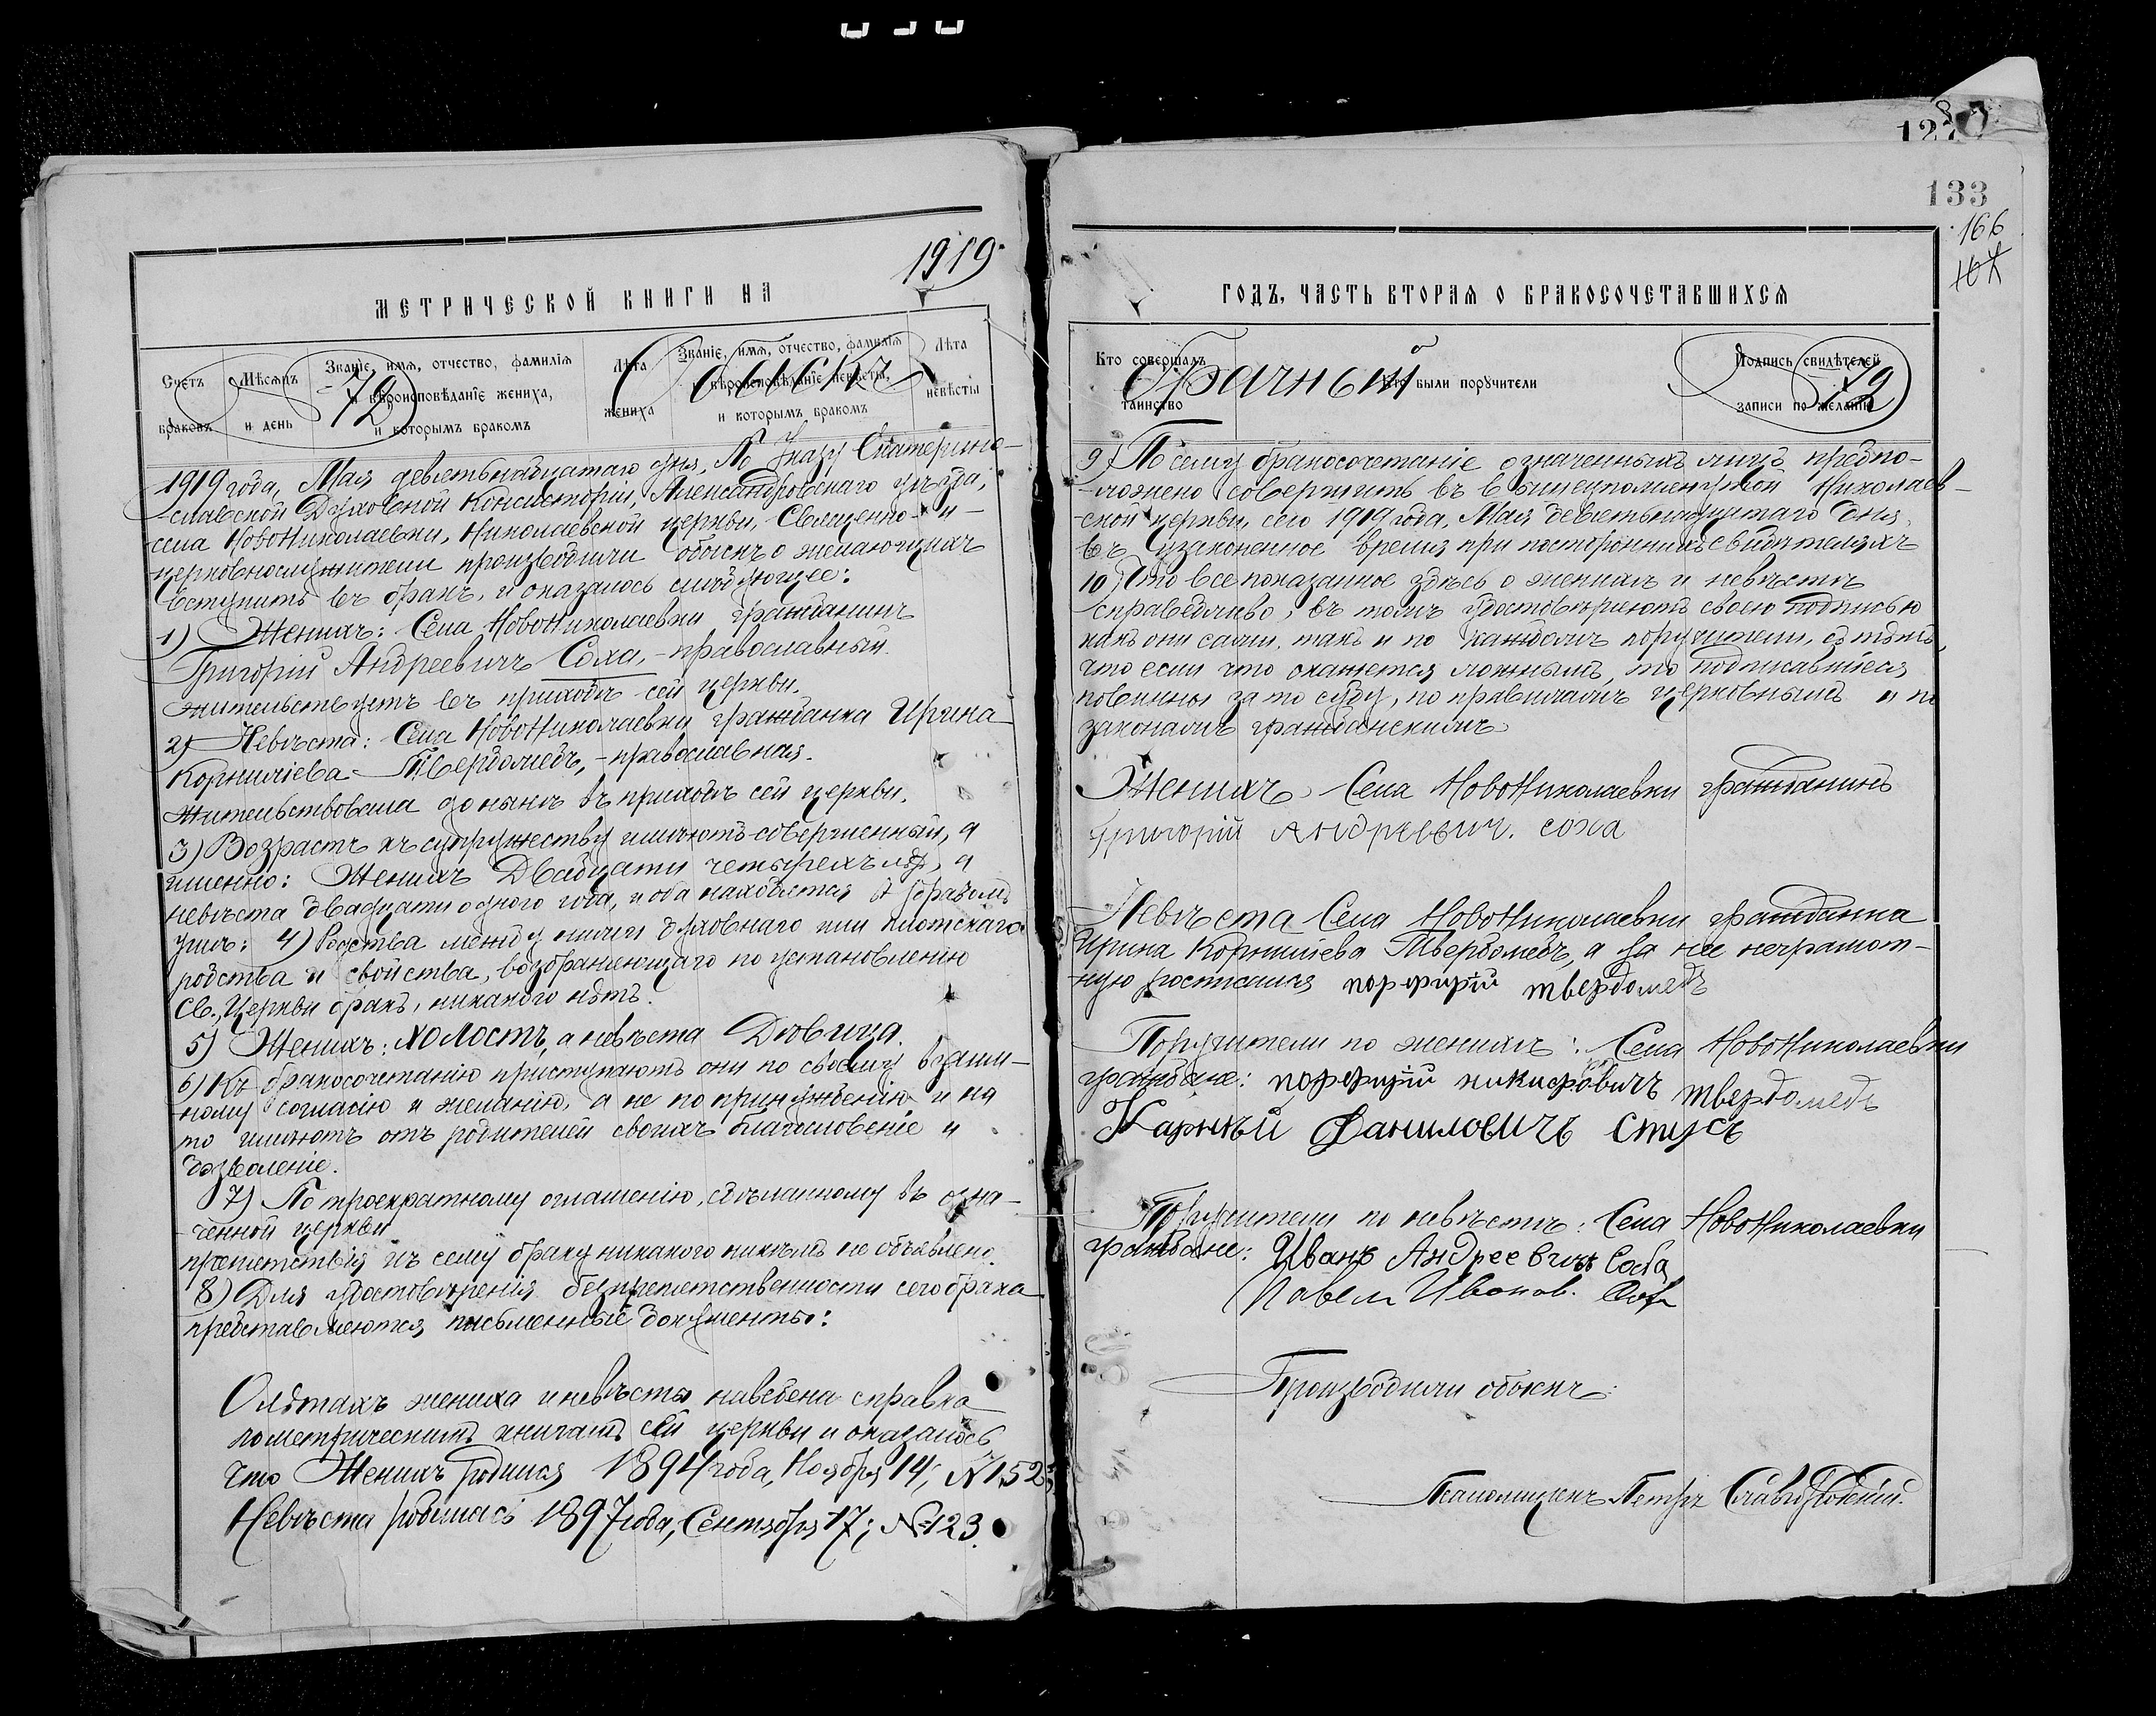 127
133
166
1919.
МЕТРИЧЕСКОЙ КНИГИ НА
Счетъ браковъ
Мѣсяцъ и день
Званіе, имя, отчество, фамилія и вѣроисповѣданіе жениха, и которымъ бракомъ
Лѣта жениха
Званіе, имя, отчество, фамилія и вѣроисповѣданіе невѣсты, и которымъ бракомъ
Лѣта невѣсты
72 Обыскъ
1919 года, Мая девятьнадцатаго дня, По Указу Екатерино-
-славской Духовной Консисторіи, Александровскаго уѣзда,
села НовоНиколаевки, Николаевской церкви, Священно- и-
церковнослужители производили обыскъ о желающихъ
вступить въ бракъ, и оказалось слѣдующее:
1) Женихъ: Села НовоНиколаевки гражданинъ
Григорій Андреевичъ Соха, - православный.
жительствуетъ въ приходѣ сей церкви.
2) Невѣста: Села НовоНиколаевки гражданка Ирина
Корниліева Твердомедъ, - православная.
жительствовала донынѣ въ приходѣ сей церкви.
3) Возрастъ къ супружеству имѣютъ совершенный, а
именно: Женихъ Двадцати четырехъ лѣт, а
невѣста двадцати одного года, и оба находятся в здравомъ
умѣ: 4) Родства между ними духовнаго или плотскаго
родства и свойства, возбраняющаго по установленію
Св. Церкви бракъ, никакого нѣтъ.
5) Женихъ: холостъ, а невѣста Дѣвица.
6) Къ бракосочетанію приступаютъ они по своему взаим-
ному согласію и желанію, а не по принужденію, и на
то имѣютъ отъ родителей своихъ благословеніе и
дозволеніе.
7) По троекратному оглашенію, сдѣланному въ озна-
-ченной церкви
препятствія къ сему браку никакого никѣмъ не объявлено.
8) Для удостовѣренія безпрепятственности сего брака
представляются письменные документы:
О лѣтахъ жениха и невѣсты наведена справка
по метрическимъ книгамъ сей церкви и оказалось
что Женихъ родился 1894 года, Ноября 14, №152;
Невѣста родилась 1897 года, Сентября 17; №123.
ГОДЪ, ЧАСТЬ ВТОРАЯ О БРАКОСОЧЕТАВШИХСЯ
Кто совершалъ таинство
Кто были поручители
Подпись свидѣтелей записи по желанію
Брачный 72
9) По сему бракосочетаніе означенныхъ лицъ предпо-
-ложено совершить въ вышеупомянутой Николаев-
-ской церкви, сего 1919 года, Мая девятьнадцатаго дня,
въ узаконенное время при постороннихъ свидѣтеляхъ
10) Что все показанное здѣсь о женихѣ и невѣстѣ
справедливо, въ томъ удостовѣряютъ своею подписью
какъ они сами, такъ и по каждомъ поручители, съ тѣмъ,
что если что окажется ложнымъ, то подписавшіеся
повинны за то суду, по правиламъ церковнымъ и по
законамъ гражданскимъ
Женихъ Села НовоНиколаевки гражданинъ
Григорій Андреевич. соха
Невѣста Села НовоНиколаевки гражданка
Ирина Корниліева Твердомедъ, а за нее неграмот-
-ную росписался порфирій твердомедъ
Поручители по женихѣ: Села НовоНиколаевки
граждане: порфирій никифовичъ твердомедъ
Даниловичъ Стусъ
Поручители по невѣстѣ: Села НовоНиколаевки
граждане: Иванъ Андреевичъ
Павелъ Иванов.
Производили обыскъ:
Псаломщикъ Петръ